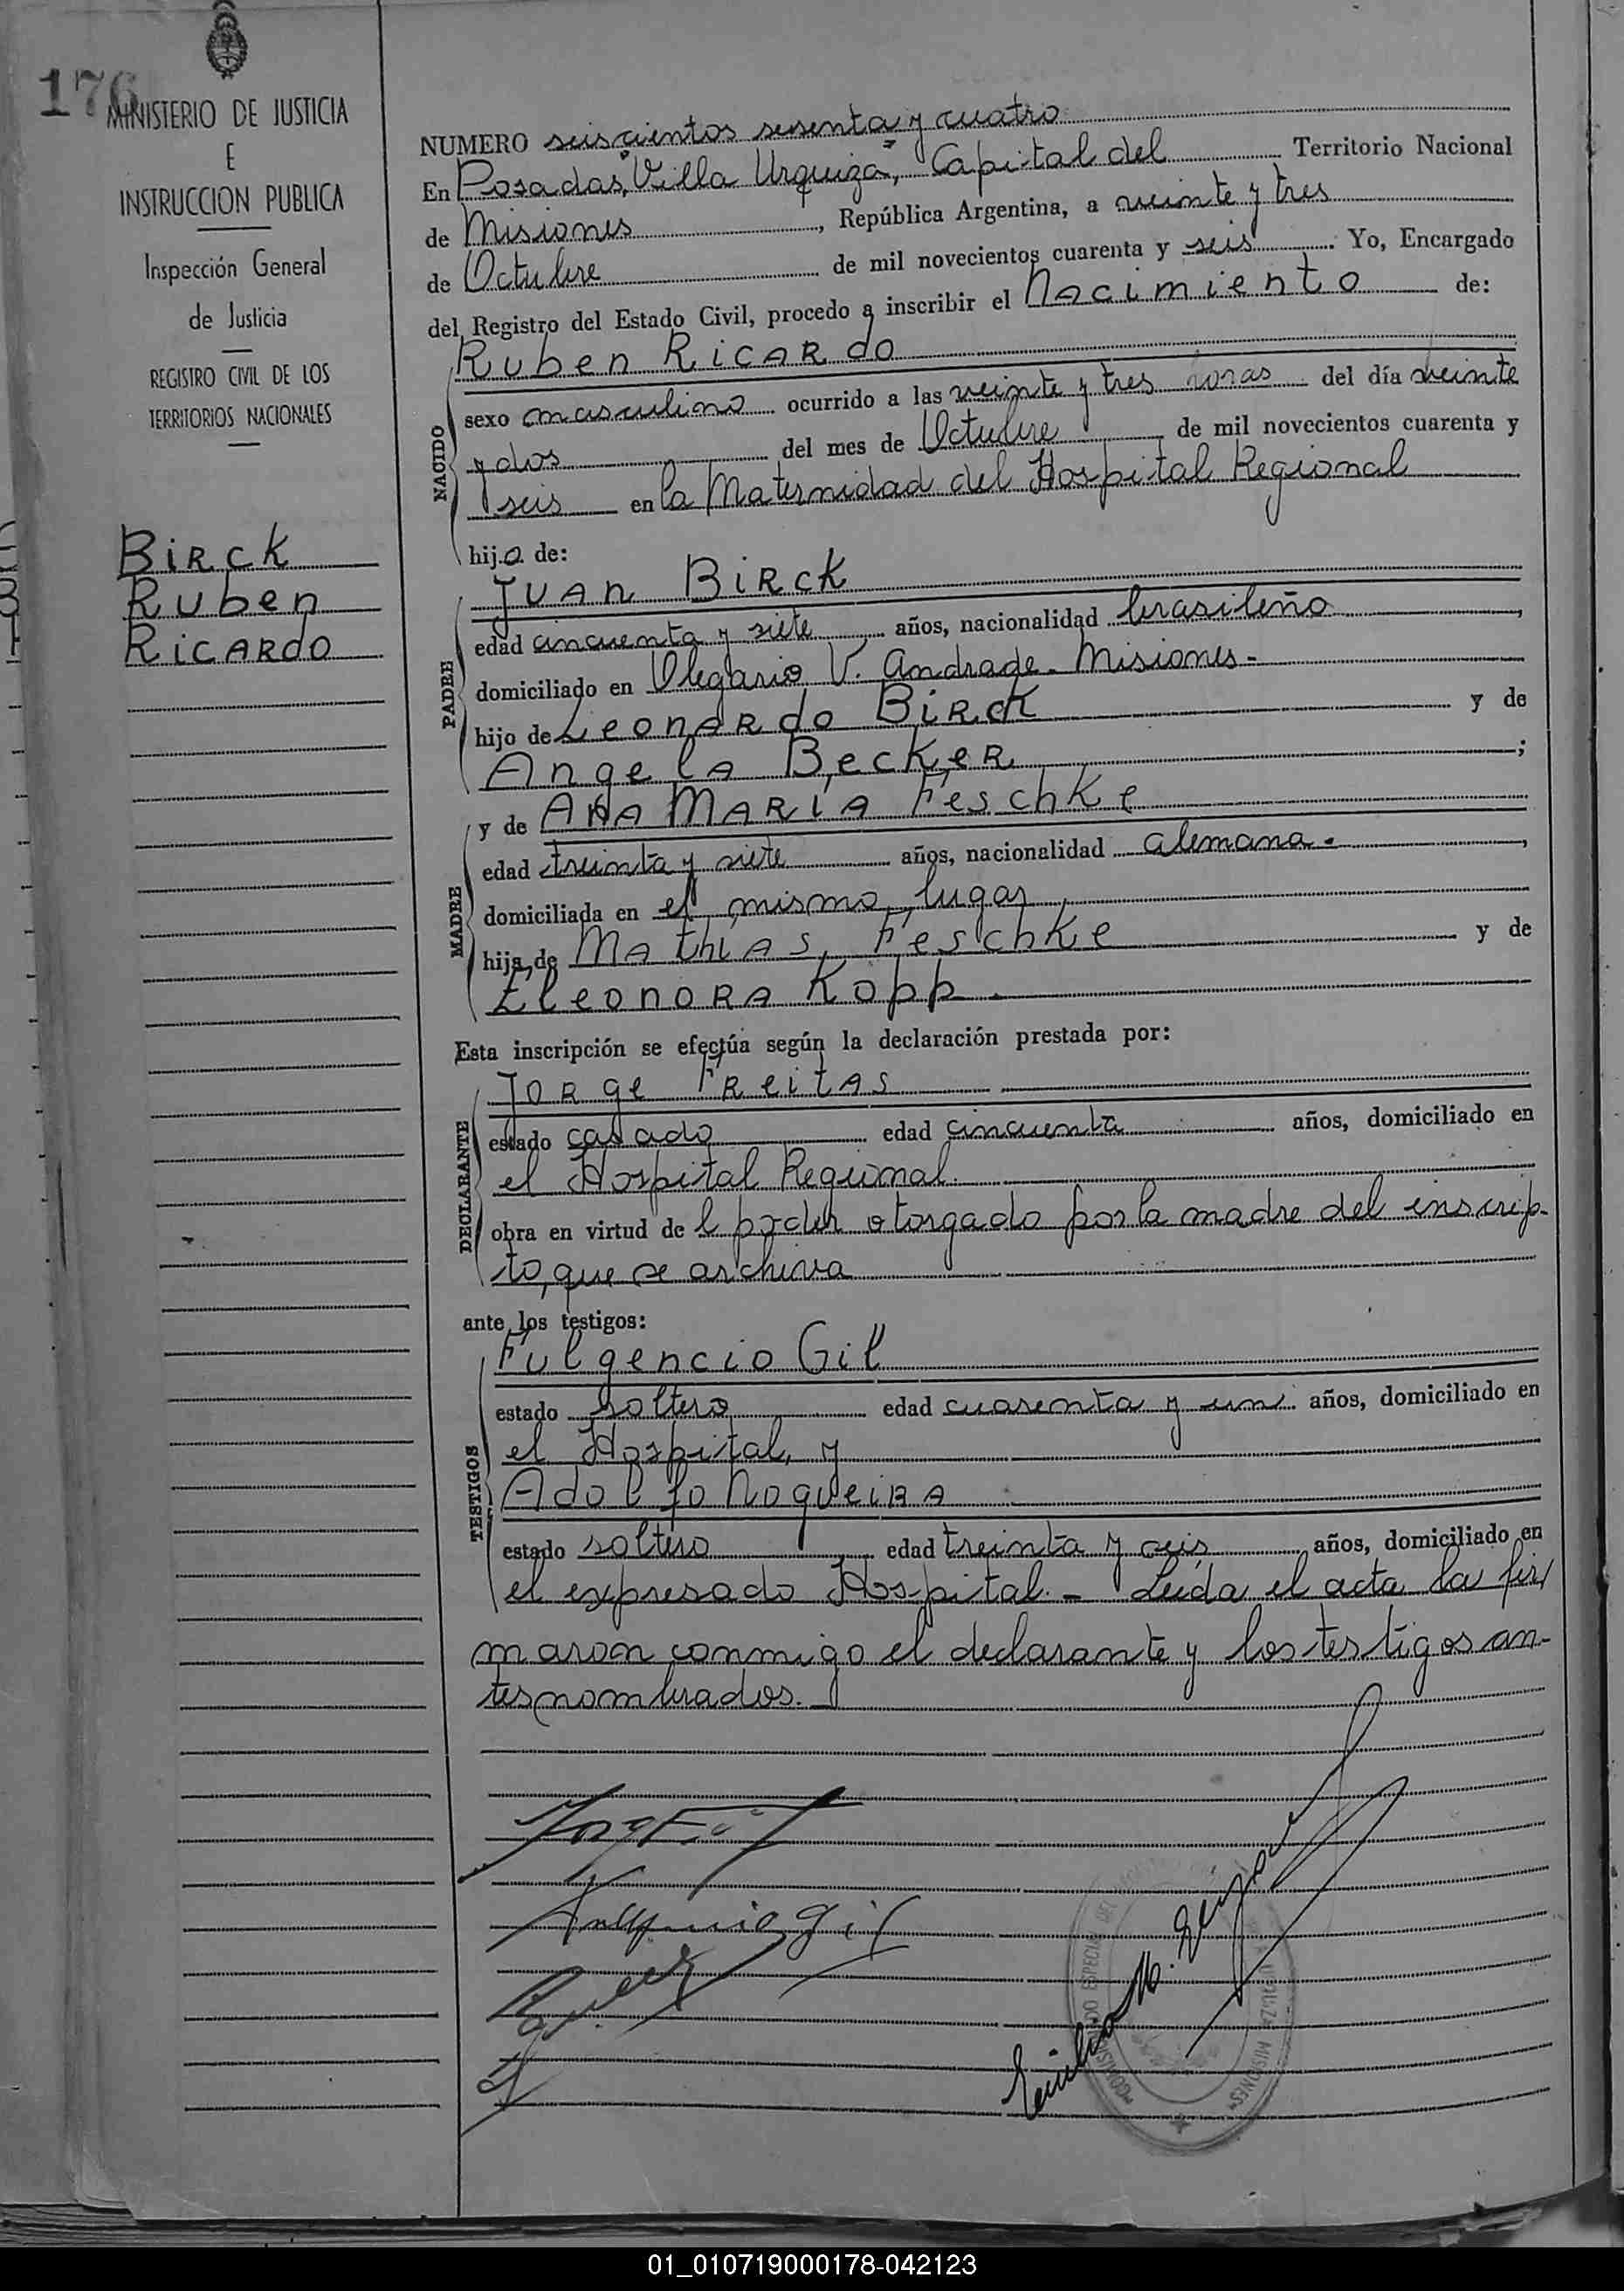 176
MINISTERIO DE JUSTICIA
E
INSTRUCCION PUBLICA
Inspección General
de Justicia
REGISTRO CIVIL DE LOS
TERRITORIOS NACIONALES
Birck
Ruben
Ricardo
NUMERO seiscientos sesenta y cuatro
En Posadas, "Villa Urquiza", Capital del Territorio Nacional
de Misiones, República Argentina, a veinte y tres
de Octubre de mil novecientos cuarenta y seis. Yo, Encargado
del Registro del Estado Civil, procedo a inscribir el Nacimiento de:
Ruben Ricardo
NACIDO
sexo masculino ocurrido a las veinte y tres horas del día veinte
y dos del mes de Octubre de mil novecientos cuarenta y
seis en la Maternidad del Hospital Regional
hijo de:
Juan Birck
PADRE
edad cincuenta y siete años, nacionalidad brasileño,
domiciliado en Olegario V. Andrade - Misiones -
hijo de Leonardo Birck y de
Angela Becker;
y de Ana Maria Feschke
MADRE
edad treinta y siete años, nacionalidad alemana.,
domiciliada en el mismo lugar
hija de Mathias Feschke y de
Eleonora Kopp.
Esta inscripción se efectúa según la declaración prestada por:
Jorge Freitas
DECLARANTE
estado casado edad cincuenta años, domiciliado en
el Hospital Regional.
obra en virtud del poder otorgado por la madre del inscrip-
to, que se archiva
ante los testigos:
Fulgencio Gil
TESTIGOS
estado soltero edad cuarenta y un años, domiciliado en
el Hospital, y
Adolfo Nogueira
estado soltero edad treinta y seis años, domiciliado en
el expresado Hospital. - Leída el acta la fir
maron conmigo el declarante y los testigos an-
tes nombrados. -
01_010719000178-042123